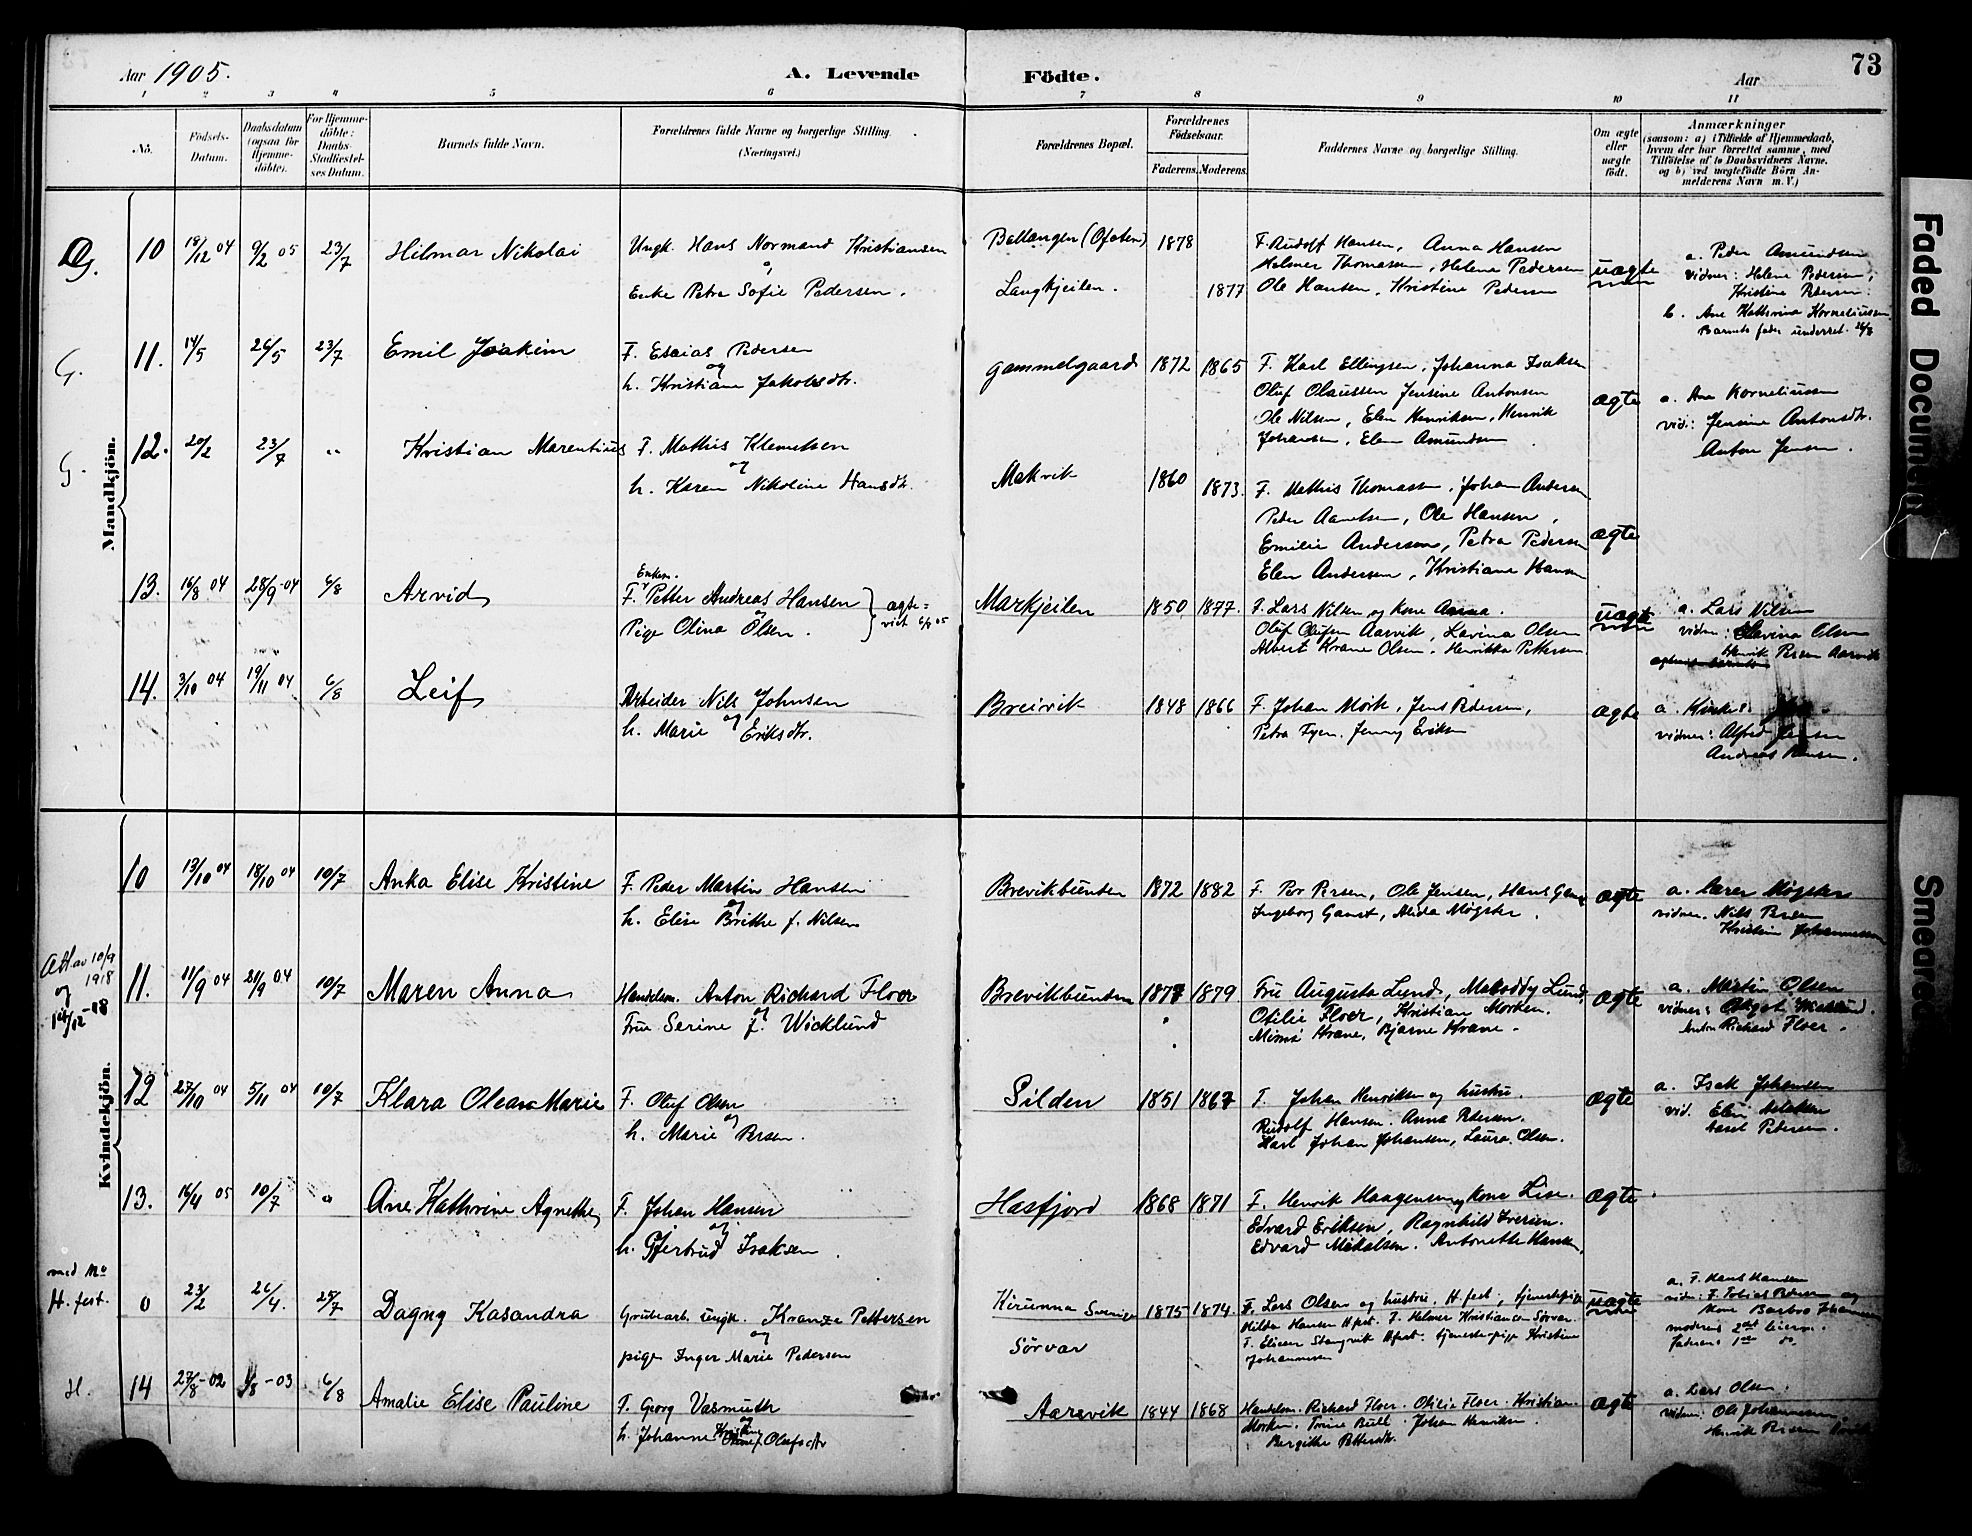 Aar 1905.
A. Levende Födte.
Aar
73
1 2 3 4 5 6 7 8 9 10 11
No.
Födsels-Datum.
Daabsdatum (ogsaa for Hjemme-døbte).
For Hjemme-døbte: Daabs-Stadfæstel-ses Datum.
Barnets fulde Navn.
Forældrenes fulde Navne og borgerlige Stilling. (Næringsvei.)
Forældrenes Bopæl.
Forældrenes Födselsaar.
Faderens. Moderens.
Faddernes Navne og borgerlige Stilling.
Om ægte eller uægte födt.
Anmærkninger
(saasom: a) i Tilfælde af Hjemmedaab, hvem der har forrettet samme, med Tilföielse af to Daabsvidners Navne, og b) ved uægtefödte Börn An-melderens Navn m. V.)
Mandkjön.
G. 10 18/12 04 9/2 05 23/7 Hilmar Nikolai
Ungk. Hans Normand Kristiansen
og
Enke Petra Sofie Pedersen.
Ballangen (Ofoten) 1878
Langkjeilen. 1877
F. Rudolf Hansen, Anna Hansen
Helmer Thomassen, Helene Pedersen
Ole Hansen, Kristine Pedersen
uægte
a. Peder Amundsen
vidner: Helene Pedersen,
Kristine Pedersen.
b. Ane Kathrina Korneliussen
Barnets fader underret. 26/8
G. 11. 14/5 26/5 23/7 Emil Joakim
F. Esaias Pedersen
og
h. Kristiane Jakobsdtr.
Gammelgaard 1872 1865
F. Karl Ellingsen, Johanna Isaksen
Oluf Olaussen Jensine Antonsen
Ole Nilsen, Elen Henriksen, Henrik
Johansen, Elen Amundsen
ægte
a. Ane Korneliussen
vid.: Jensine Antonsdtr.
Anton Jensen.
G. 12. 20/2 23/7 " Kristian Marentius
F. Mathis Klemetsen
og
h. Karen Nikoline Hansdtr.
Makvik 1860 1873.
F. Mathis Thomassen, Johan Andersen
Peder Aanetsen, Ole Hansen,
Emilie Andersen, Petra Pedersen
Elen Andersen, Kristiane Hansen
ægte
13. 16/8 04 28/9-04 6/8 Arvid
Enkem.
F. Petter Andreas Hansen
og
Pige Olina Olsen.
ægte=
viet 6/8 05
Markjeilen 1850 1877.
F. Lars Nilsen og kone Anna.
Oluf Olufsen Aarvik, Lavina Olsen
Albert Krane Olsen, Henrikka Pettersen
uægte
a. Lars Nilsen
vidner: Lavina Olsen
Henrik Persen Aarvik
14. 3/10 04 19/11 04 6/8 Leif
Arbeider Nils Johnsen
og
h. Marie Eriksdtr.
Breivik 1848 1866
F. Johan Mörk, Jens Pedersen,
Petra Fyen. Jenny Eriksen
ægte
vidner: Alfred Jensen
Andreas Persen.
Kvindekjön.
10 13/10 04 18/10 04 10/7 Anka Elise Kristine
F. Peder Martin Hansen
og
h. Elise Brithe f. Nilsen
Brevikbunden 1872 1882
F. Per Persen, Ole Jensen, Hans Ganst
Ingeborg Ganst, Alida Møgster.
ægte
a. Lærer Møgster
vidner. Nils Persen
Kristine Johannessen
Att. av 10/9
1918
og
12/12-18
11. 11/9 04 21/9 04 10/7 Maren Anna
Handelsm. Anton Richard Floer
og
Frue Serine f. Wicklund
Brevikbunden 1877 1879
Fru Augusta Lund, Meloddy Lund,
Otilie Floer, Kristian Morken.
Mimi Krane, Bjarne Krane.
ægte
a. Martin Olsen
vidner: August Wicklund.
Anton Richard Floer.
12 27/10 04 5/11 04 10/7 Klara Oleana Marie
F. Oluf Olsen
og
h. Marie Persen.
Silden 1851 1867
F. Johan Henriksen og hustru.
Rudolf Hansen. Anna Pedersen.
Karl Johan Johansen, Laura Olsen.
ægte
a. Isak Johansen
vid. Elen Aslaksen
Aaret Pedersen.
13. 16/4 05 10/7 " Ane Kathrine Agnethe
F. Johan Hansen
og
h. Gjertrud Isaksen.
Hasfjord 1868 1871
F. Henrik Haagensen og kone Lise.
Edvard Eriksen, Ragnhild Iversen.
Edvard Mikalsen. Antonette Hansen.
ægte
med No
H. fest.
0 23/2 26/4. 25/7 Dagny Kasandra
Grubearb. ungk. Kranze Pettersen
og
pige Inger Marie Pedersen
Kirunna Sverige 1875 1874.
Sörvær
F. Lars Olsen og hustru, H.fest, tjenestepige
Hilda Hansen H.fest. F. Helmer Kristiansen Sörvær.
F. Elisen Stangvik H.fest. tjenestepige Kristine
Johannessen
uægte
a. F. Hans Hansen
vidn: F. Tobias Pedersen og
kone Barbro Johannessen
moderens 2det leierm.
faderens 1ste do.
H. 14 27/8-02 1/8-03 6/8 Amalie Elise Pauline
F. Georg Vasmuth
og
h. Johanne Kristine Olufsdtr
Aarsvik 1844 1868
Handelsm. Richard Floer. Otilie Floer. Kristian
Morken. Trine Bull. Johan Henriksen.
Bergithe Pettersdtr.
ægte
a. Lars Olsen.
vidner. Ole Johannessen
Henrik Persen
Faded Document
Smeared